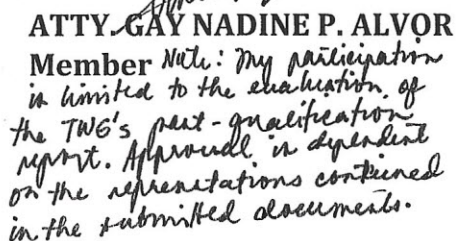 ATTY. GAY NADINE P. ALVOR
Member Note: My participation
is limited to the evaluation of
the TWG's post-qualification
report. Approval is dependent
on the representations contained
in the submitted documents.